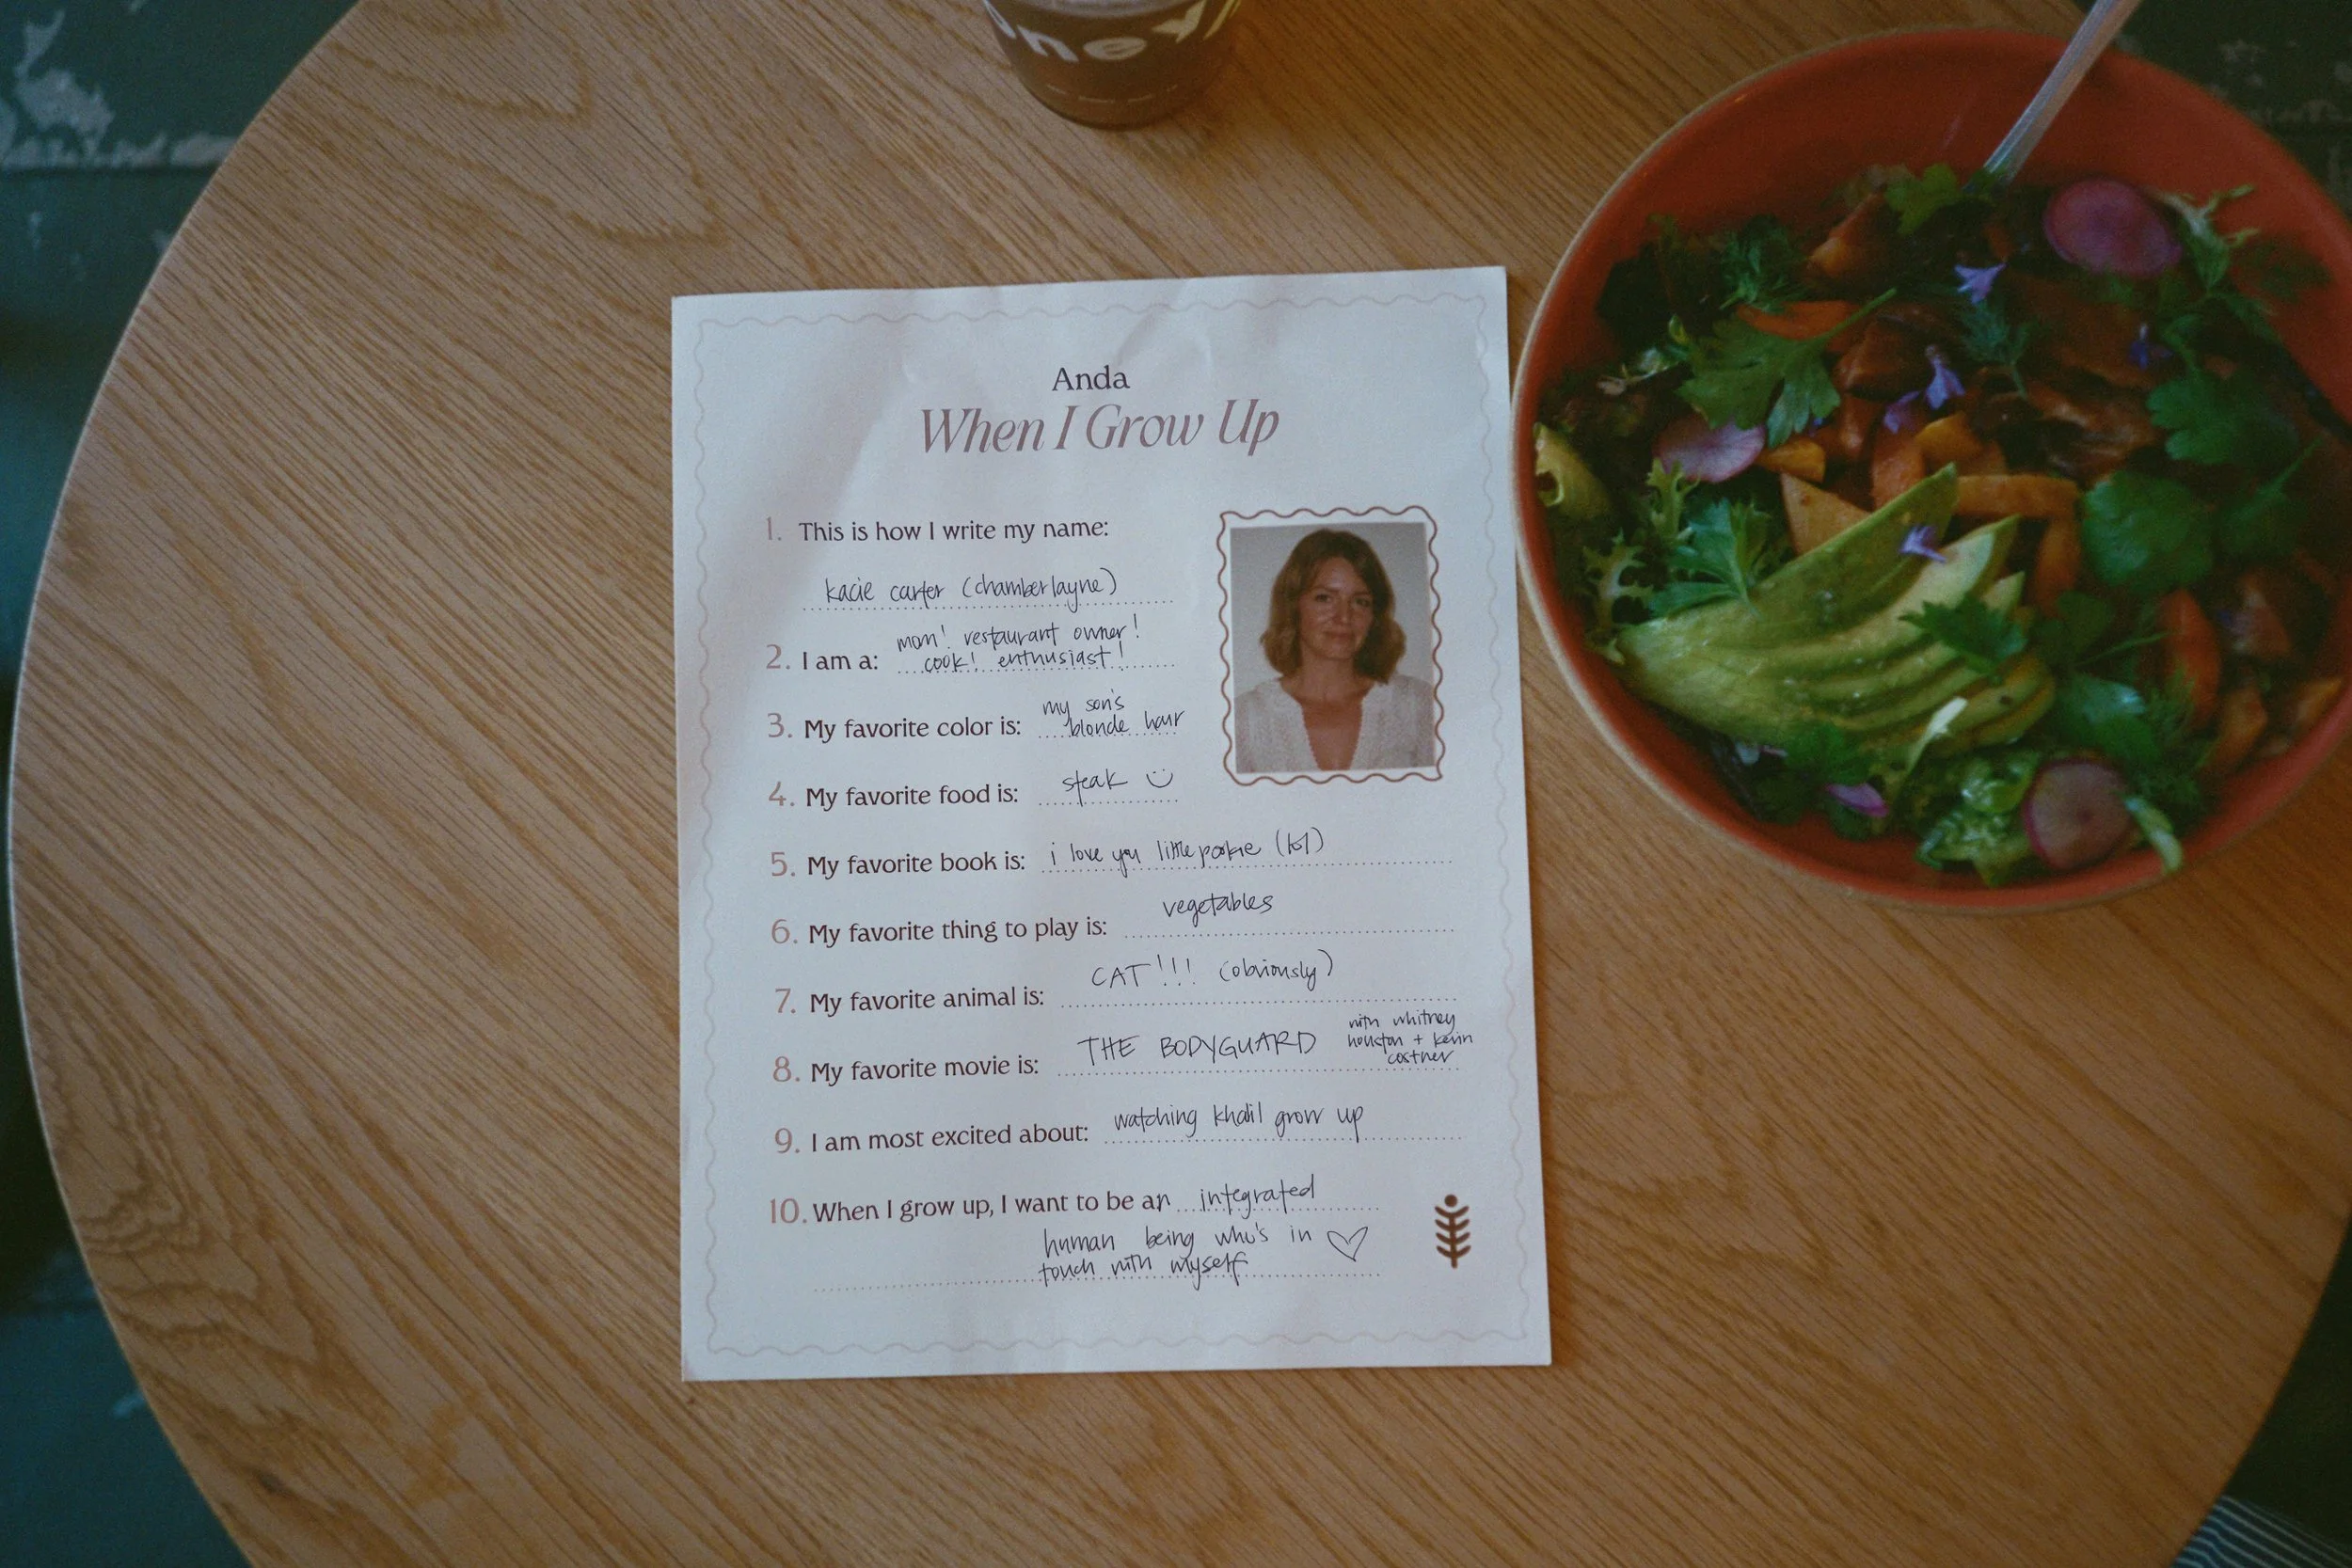 ney
Anda
When I Grow Up
1. This is how I write my name:
kacie carter (chamberlayne)
2. I am a: mom! restaurant owner!
cook! enthusiast!
3. My favorite color is: my son's
blonde hair
4. My favorite food is: steak
5. My favorite book is: i love you little pookie (lol)
6. My favorite thing to play is: vegetables
7. My favorite animal is: CAT!!! (obviously)
8. My favorite movie is: THE BODYGUARD with whitney
houston + kevin
costner
9. I am most excited about: watching khalil grow up
10. When I grow up, I want to be an integrated
human being who's in
touch with myself